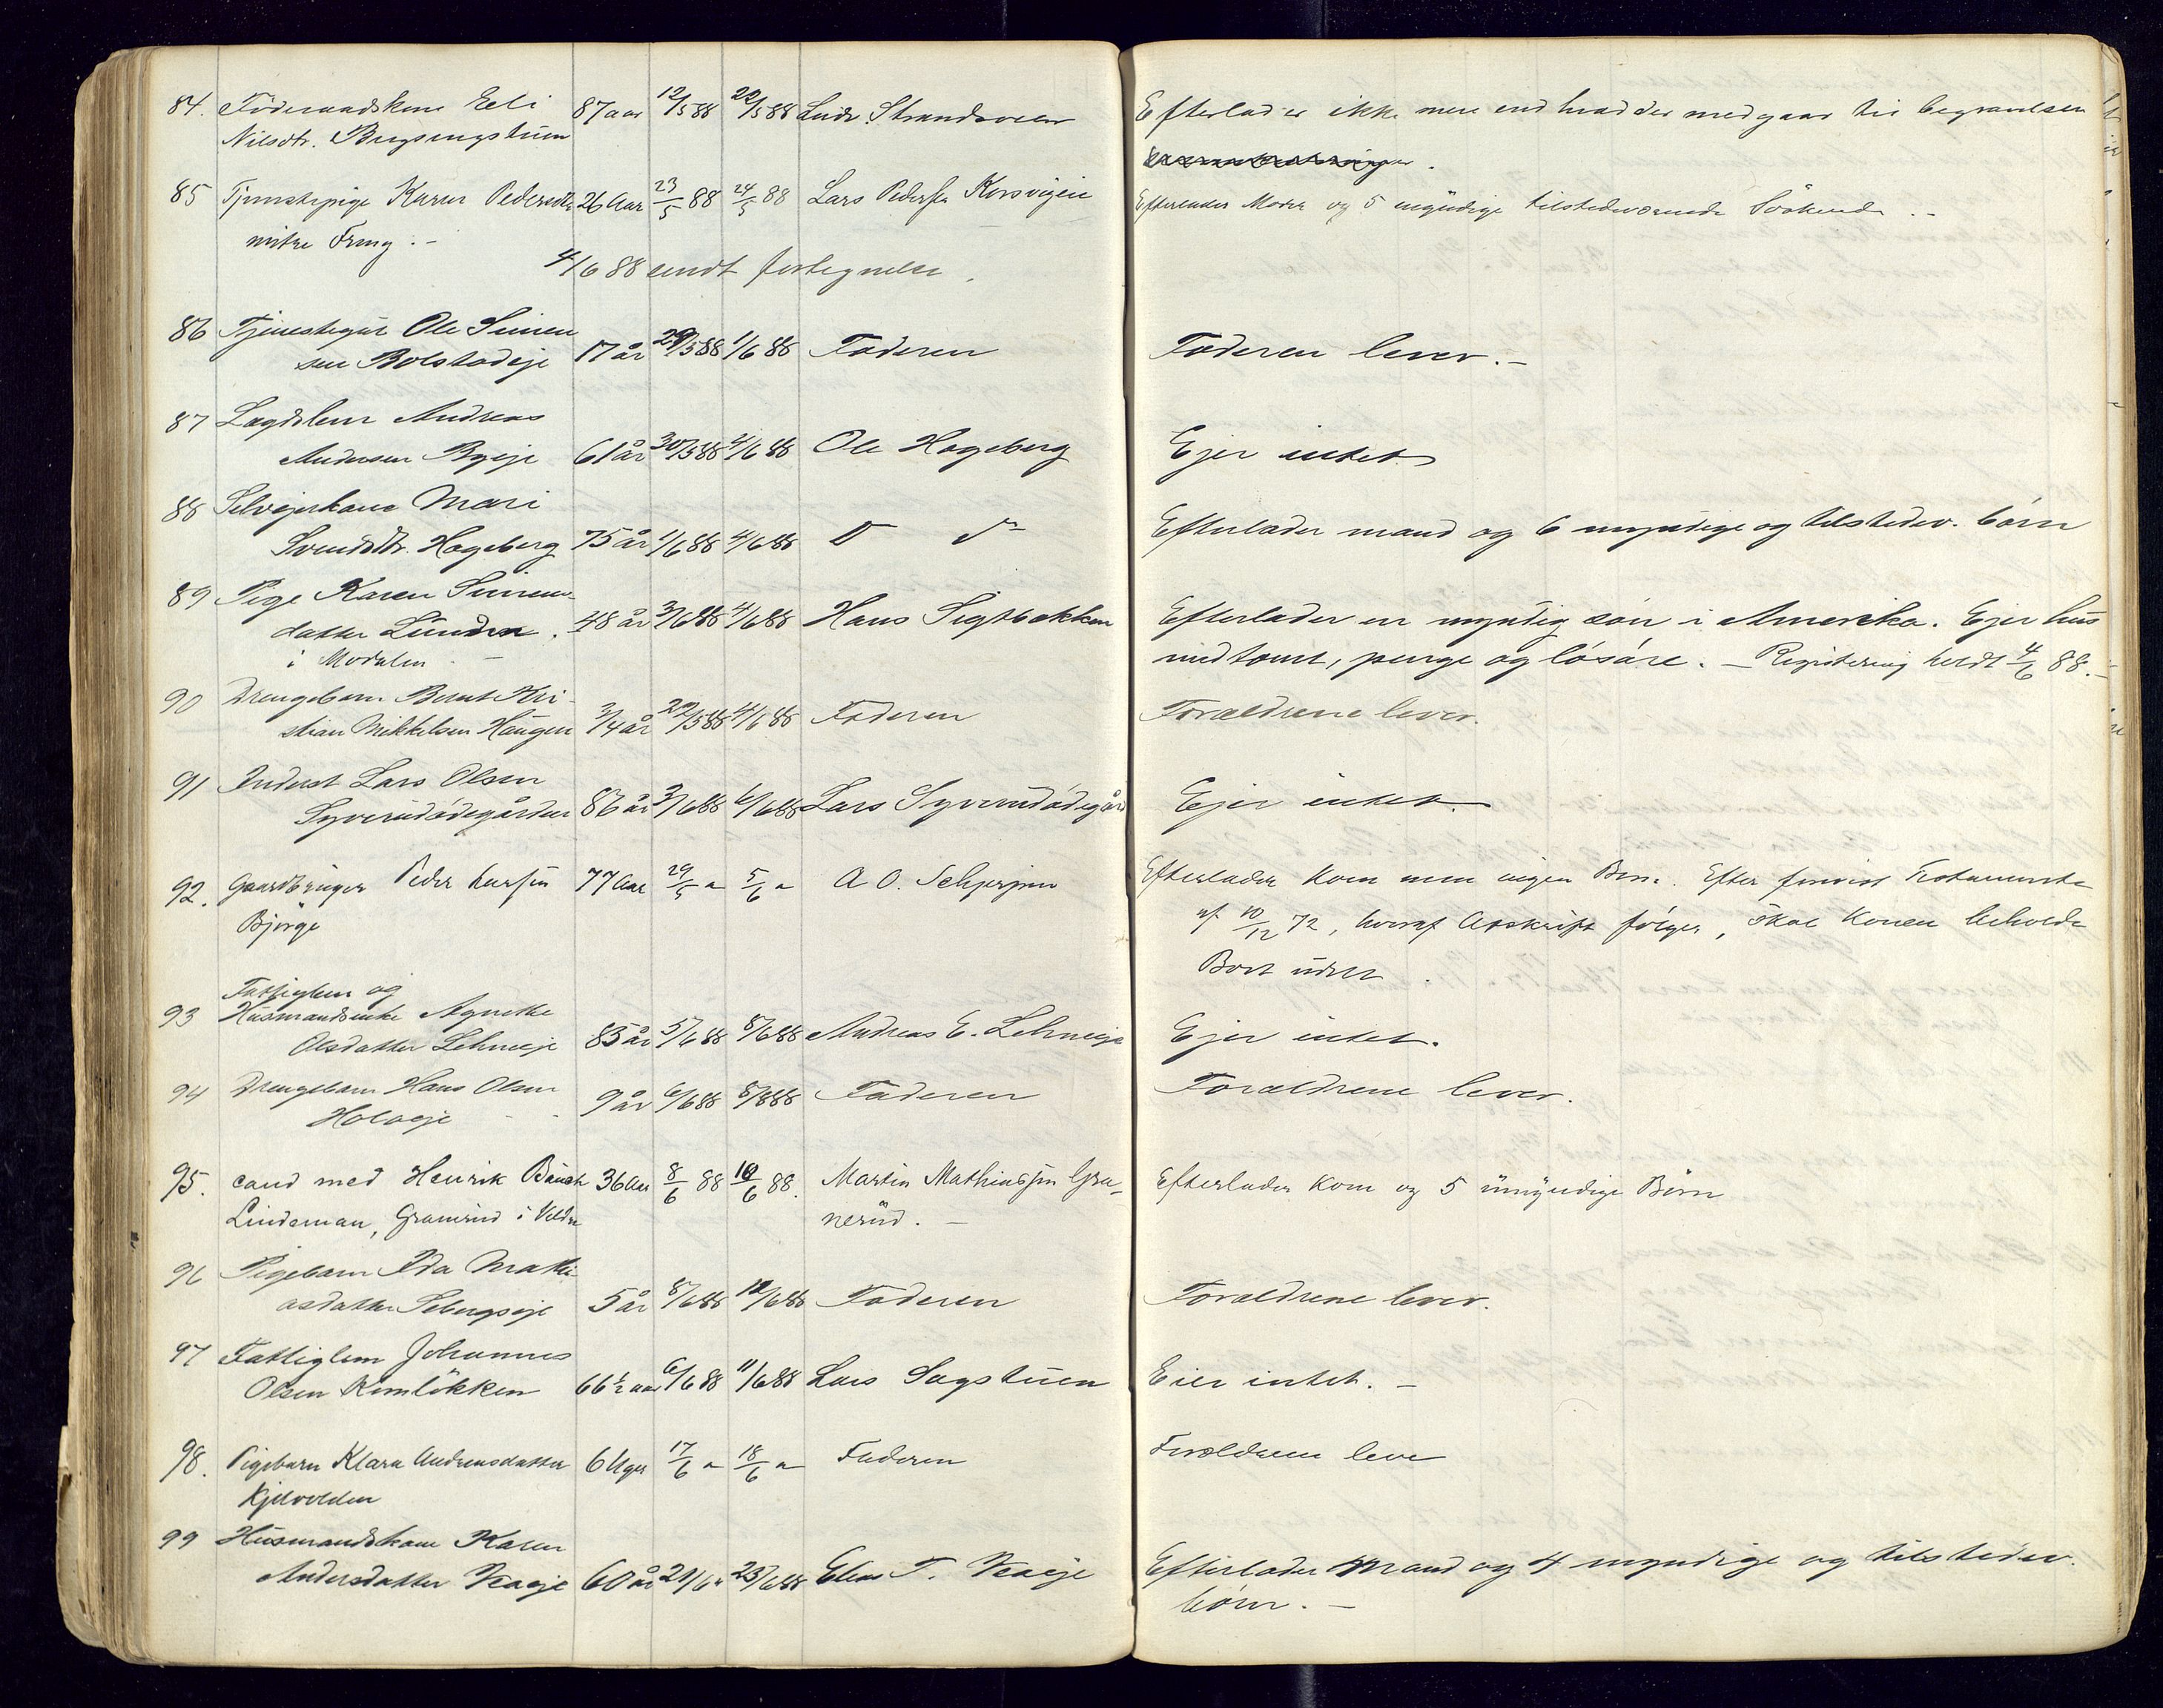 84. Föderaadskone Eli 87 aar 12/5 88 22/5 88 Ludv. Strandveen Efterlader ikke mere end hvad der medgaar til begravelsen
Nilsdtr.
85 Tjenstepige Karen Pedersdtr 26 Aar 23/5 88 24/5 88 Lars Pedersen Korsvigen Efterlader Moder og 5 myndige tilstedeværende Söskende . -
4/6 88 sendt fortegnelse.
86 Tjenestegut Ole Simen
sen Bolstadeje 17 år 29/5 88 1/6 88 Faderen Faderen lever. -
87 Lægdslem Andreas
Andersen Byeje 61 år 30/5 88 4/6 88 Ole Hageberg Ejer intet
88 Selvejerkone Mari
Svendsdtr. Hageberg 75 år 1/6 88 4/6 88 Efterlader mand og 6 myndige og tilstedev. börn
89 Pige Karen Simens-
datter Lunden. 48 år 3/6 88 4/6 88 Hans Sigtbakken Efterlader en myndig sön i Amerika. Ejer hus
i Modalen - med tomt, penge og lösöre. - Registrering holdt 4/6 88. -
90 Drengebarn Bernt Kri-
stian Mikkelsen Haugen 3/4 år 29/5 88 4/6 88 Faderen Forældrene lever.
91 Inderst Lars Olsen
Syverudödegården 86 år 3/6 88 6/6 88 Lars Syverudödegård Ejer intet.
92. Gaardbruger Peder Larsen 77 Aar 29/5 " 5/6 " A O. Schjerjen Efterlader Kone men ingen Börn. Efter Testamente
Bjørge af 10/12 72, hvoraf Afskrift følger, skal Konen beholde
Boet udelt.
Fattiglem og
93 Husmandsenke Agnethe
Olsdatter Lehneeje 85 år 5/6 88 8/6 88 Andreas E. Lehneeje Ejer intet.
94 Drengebarn Hans Olsen
Holoeje 9 år 6/6 88 8/6 88 Faderen Forældrene lever.
95. cand med Henrik Bauck 36 Aar 8/6 88 10/6 88. Martin Mathiassen Gra- Efterlader Kone og 5 umyndige Börn
Lindeman, Granerud i Veldre nerud. -
96 Pigebarn Ida Mathi
asdatter Sebergseje 5 år 8/6 88 12/6 88 Faderen Forældrene lever.
97 Fattiglem Johannes
Olsen Romlökken 66 1/2 aar 6/6 88 11/6 88 Lars Sagstuen Eier intet. -
98. Pigebarn Klara Andreasdatter 6 Uger 17/6 " 18/6 " Faderen Forældrene leve
Kjelvolden
99 Husmandskone Karen
Andersdatter 60 år 21/6 " 23/6 88 Efterlader Mand og 4 myndige og tilstedev.
börn. -